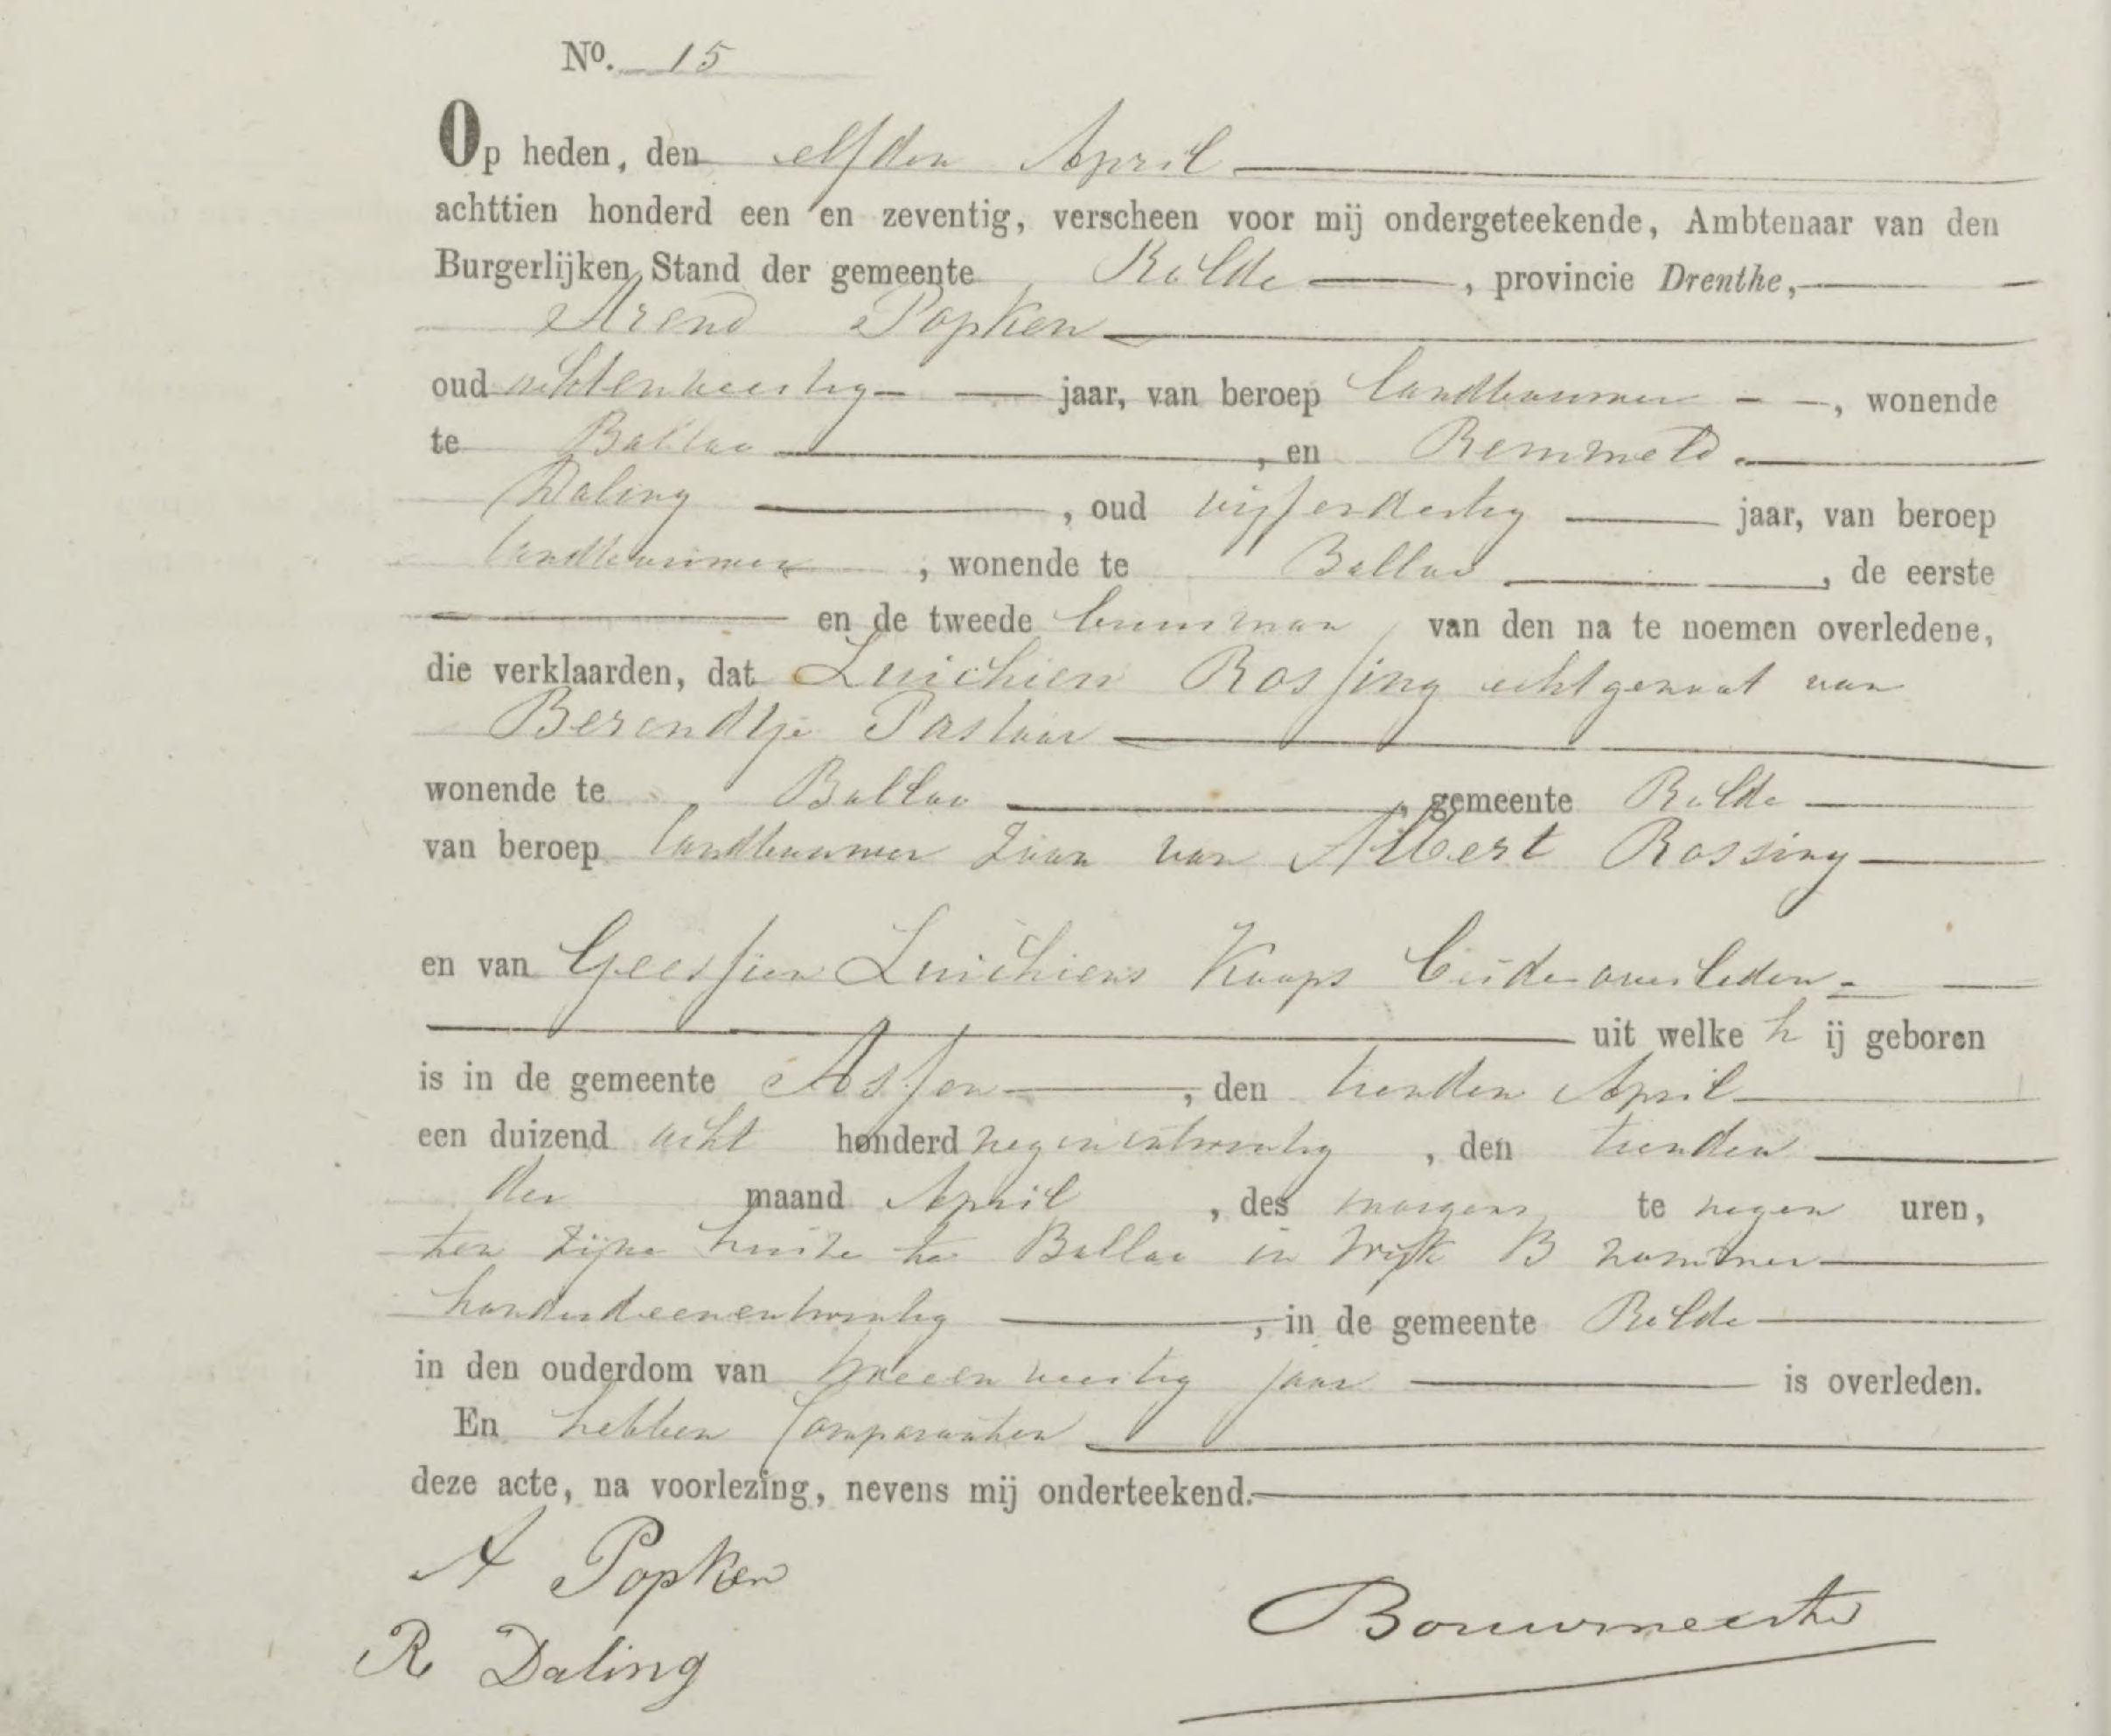 No. 15
Op heden, den elfden April
achttien honderd een en zeventig, verscheen voor mij ondergeteekende, Ambtenaar van den
Burgerlijken Stand der gemeente Rolde, provincie Drenthe,
Arend Popken
oud achtenveertig jaar, van beroep landbouwer, wonende
te Balloo, en Remmelt
Daling, oud vijfendertig jaar, van beroep
landbouwer, wonende te Balloo, de eerste
en de tweede buurman van den na te noemen overledene,
die verklaarden, dat Luichien Rossing echtgenoot van
Berendtje Pastoor
wonende te Balloo, gemeente Rolde
van beroep landbouwer zoon van Albert Rossing
en van Geessien Luichiens Koops beide overleden
uit welke h ij geboren
is in de gemeente Assen, den tienden April
een duizend acht honderd negenentwintig, den tienden
der maand April, des morgens te negen uren,
ten zijne huize te Balloo in wijk B nommer
honderdeenentwintig, in de gemeente Rolde
in den ouderdom van tweeenveertig jaar is overleden.
En hebben Comparanten
deze acte, na voorlezing, nevens mij onderteekend.
A Popken
R Daling
Bouwmeester